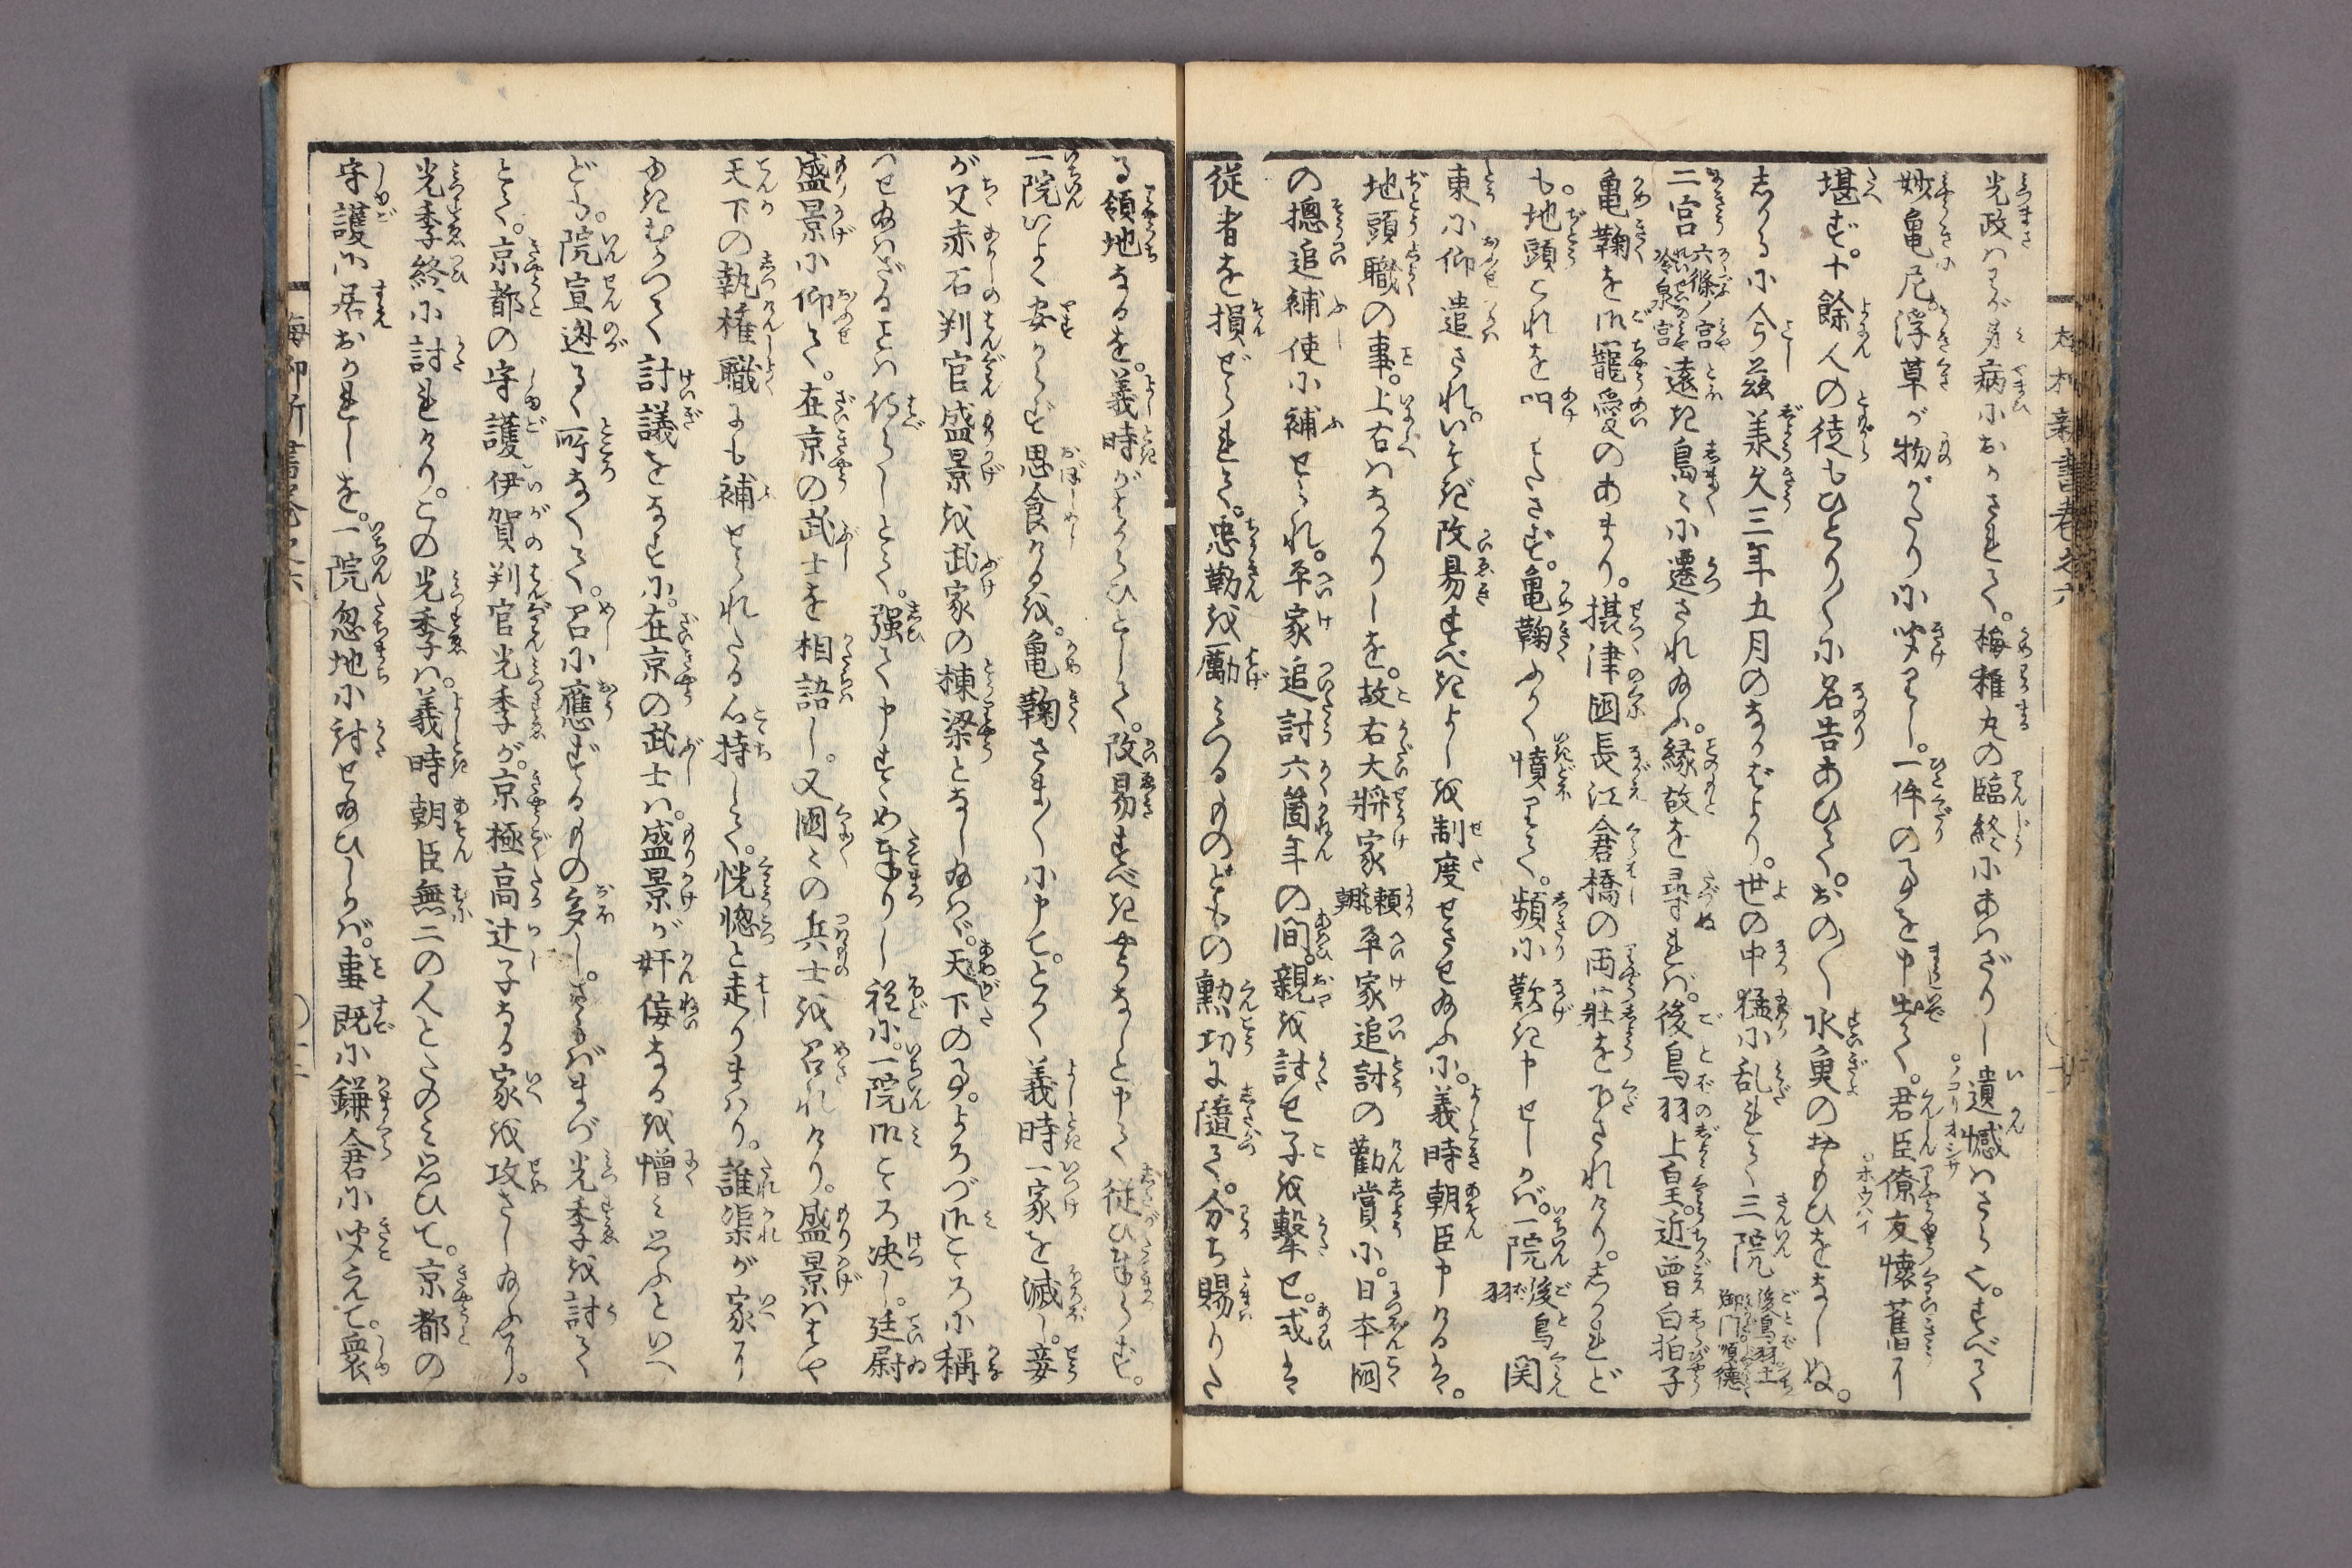 光政はわが身病におかされて。梅稚丸の臨終にあはざりし遺憾はさら也。すべて
妙亀尼。浮草が物がたりに吹けりし。一件の事を申出て。君臣僚友懐旧に
堪ず。十余人の徒もひとり〳〵に名告あひて。おの〳〵水魚のおもひをなしぬ。
しかるに今茲承久三年五月のなかばより。世の中猛に乱れて三院後鳥羽土御門順徳
二宮六條ノ宮冷泉宮遠き島々に遷され給ふ。縁故を尋れば。後鳥羽上皇。近曽白拍子
亀鞠を御寵愛のあまり。摂津国長江倉橋の両荘を下されけり。しかれど
も。地頭これを叨わたさず。亀鞠ふかく憤りて。頻に歎き申せしかば。一院後鳥羽関
東に仰遣され。いそぎ改易すべきよしを制度せさせ給ふに。義時朝臣申けるは。
地頭職の事。上古はなかりしを。故右大将家頼朝平家追討の勧賞に。日本国
の摠追補使に補せられ。平家追討六箇年の間。親を討せ子を撃せ。或は
従者を損ぜられて。忠勤を励みつるものどもの勲功に随て。分ち賜りた
る領地なるを。義時がはからひとして。改易すべきやうなしと申て従ひ奉らず。
一院いよ〳〵安からず思食ける を。亀鞠さま〴〵に申て。とかく義時一家を滅し。妾
が父赤石判官盛景を武家の棟梁となし給はゞ。天下の事。よろづ御こゝろに称
はせ給はざることは侍らしとて。強て申すゝめ奉りし程に。一院御こゝろ決し。廷尉
盛景に仰て。在京の武士を相語し。又国々の兵士を召れけり。盛景ははや
天下の執権職にも補せられたる心持して。恍惚と走りまはり。誰渠が家に
ゆきむかつて計議をなすに。在京の武士は。盛景が奸佞なるを憎み思ふといへ
ども。院宣遁るゝ所なくて。召に應ずるもの多し。さらばまづ光季を討て
とて。京都の守護伊賀判官光季が。京極高辻子なる家を攻さし給ふに。
光季終に討れけり。この光季は。義時朝臣無二の人とたのみ思ひて。京都の
守護に居おかれしを。一院忽地に討せ給ひしかば。事既に鎌倉に吹えて。衆